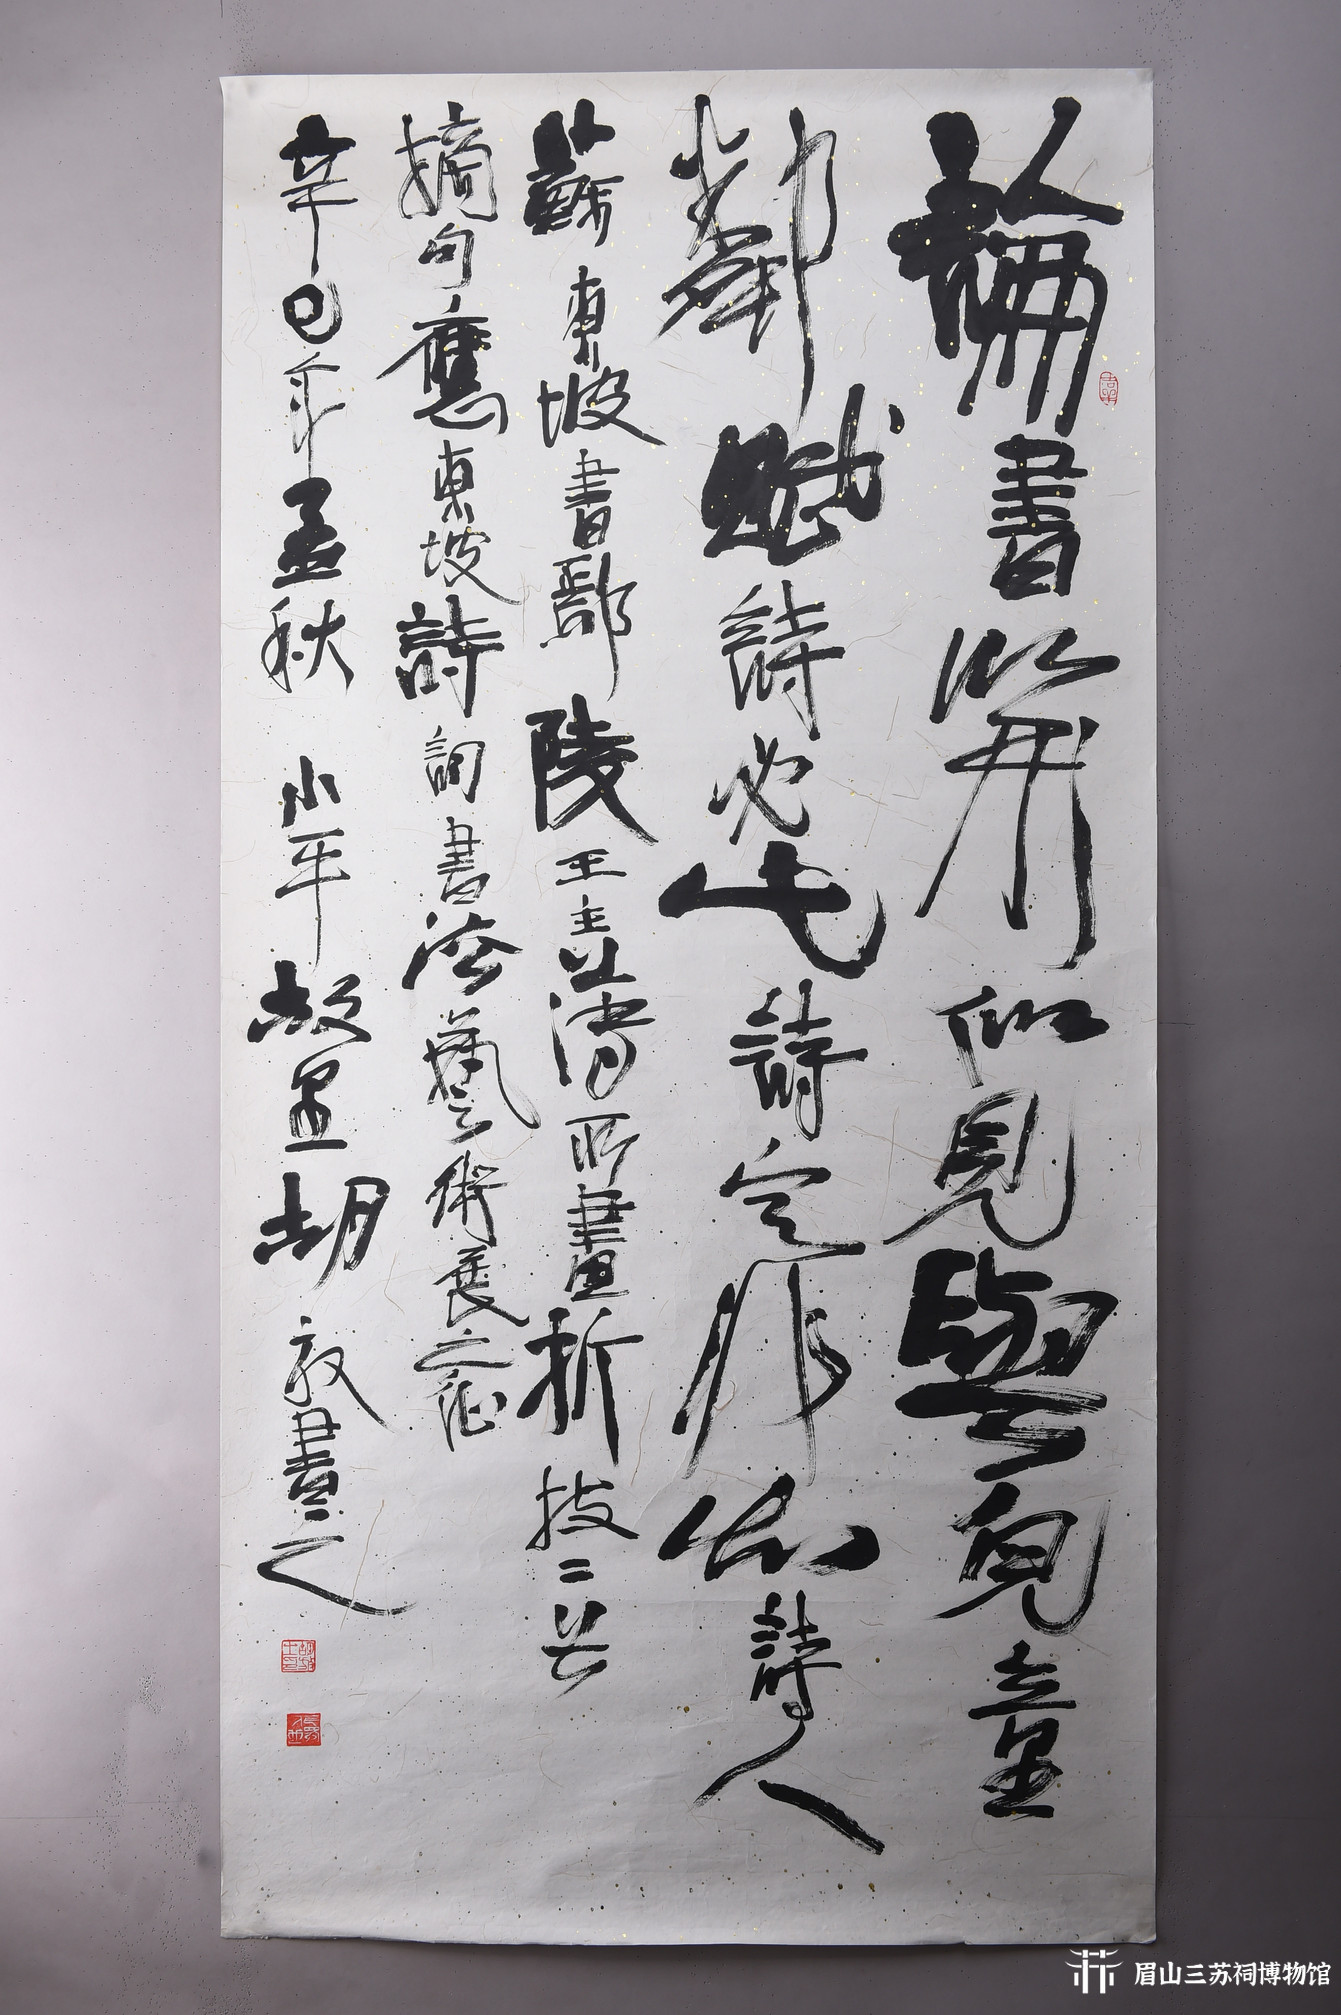 論畫以形似見與兒童
鄰賦詩必此詩定非知詩人
蘇東坡書鄢陵王主簿所畫折枝二首
摘句應東坡詩詞書法藝術展之征
辛巳年孟秋 小平故里胡書之
眉山三苏祠博物馆